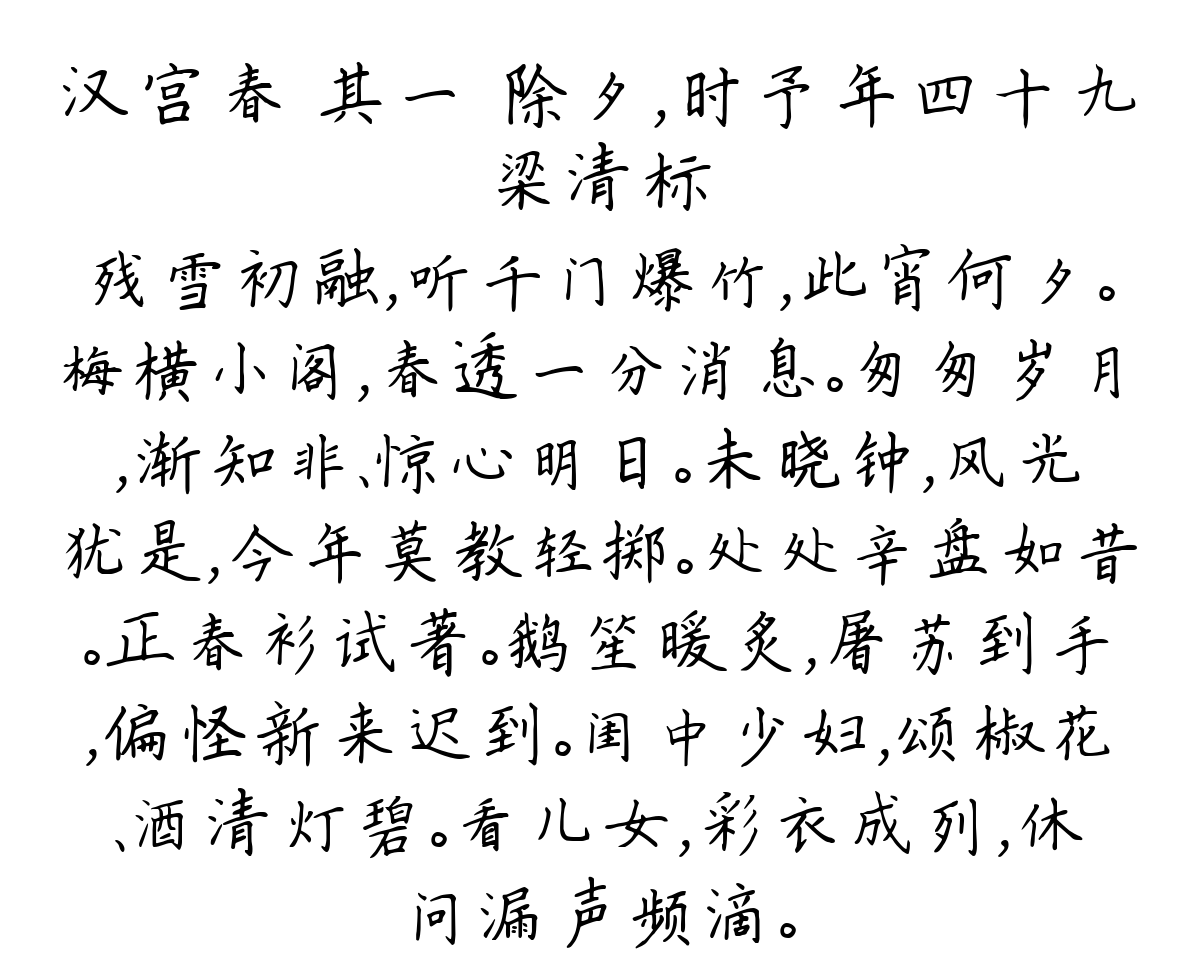 汉宫春 其一 除夕,时予年四十九
梁清标
残雪初融,听千门爆竹,此宵何夕。
梅横小阁,春透一分消息。匆匆岁月
,渐知非、惊心明日。未晓钟,风光
犹是,今年莫教轻掷。处处辛盘如昔
。正春衫试著。鹅笙暖炙,屠苏到手
,偏怪新来迟到。闺中少妇,颂椒花
、酒清灯碧。看儿女,彩衣成列,休
问漏声频滴。